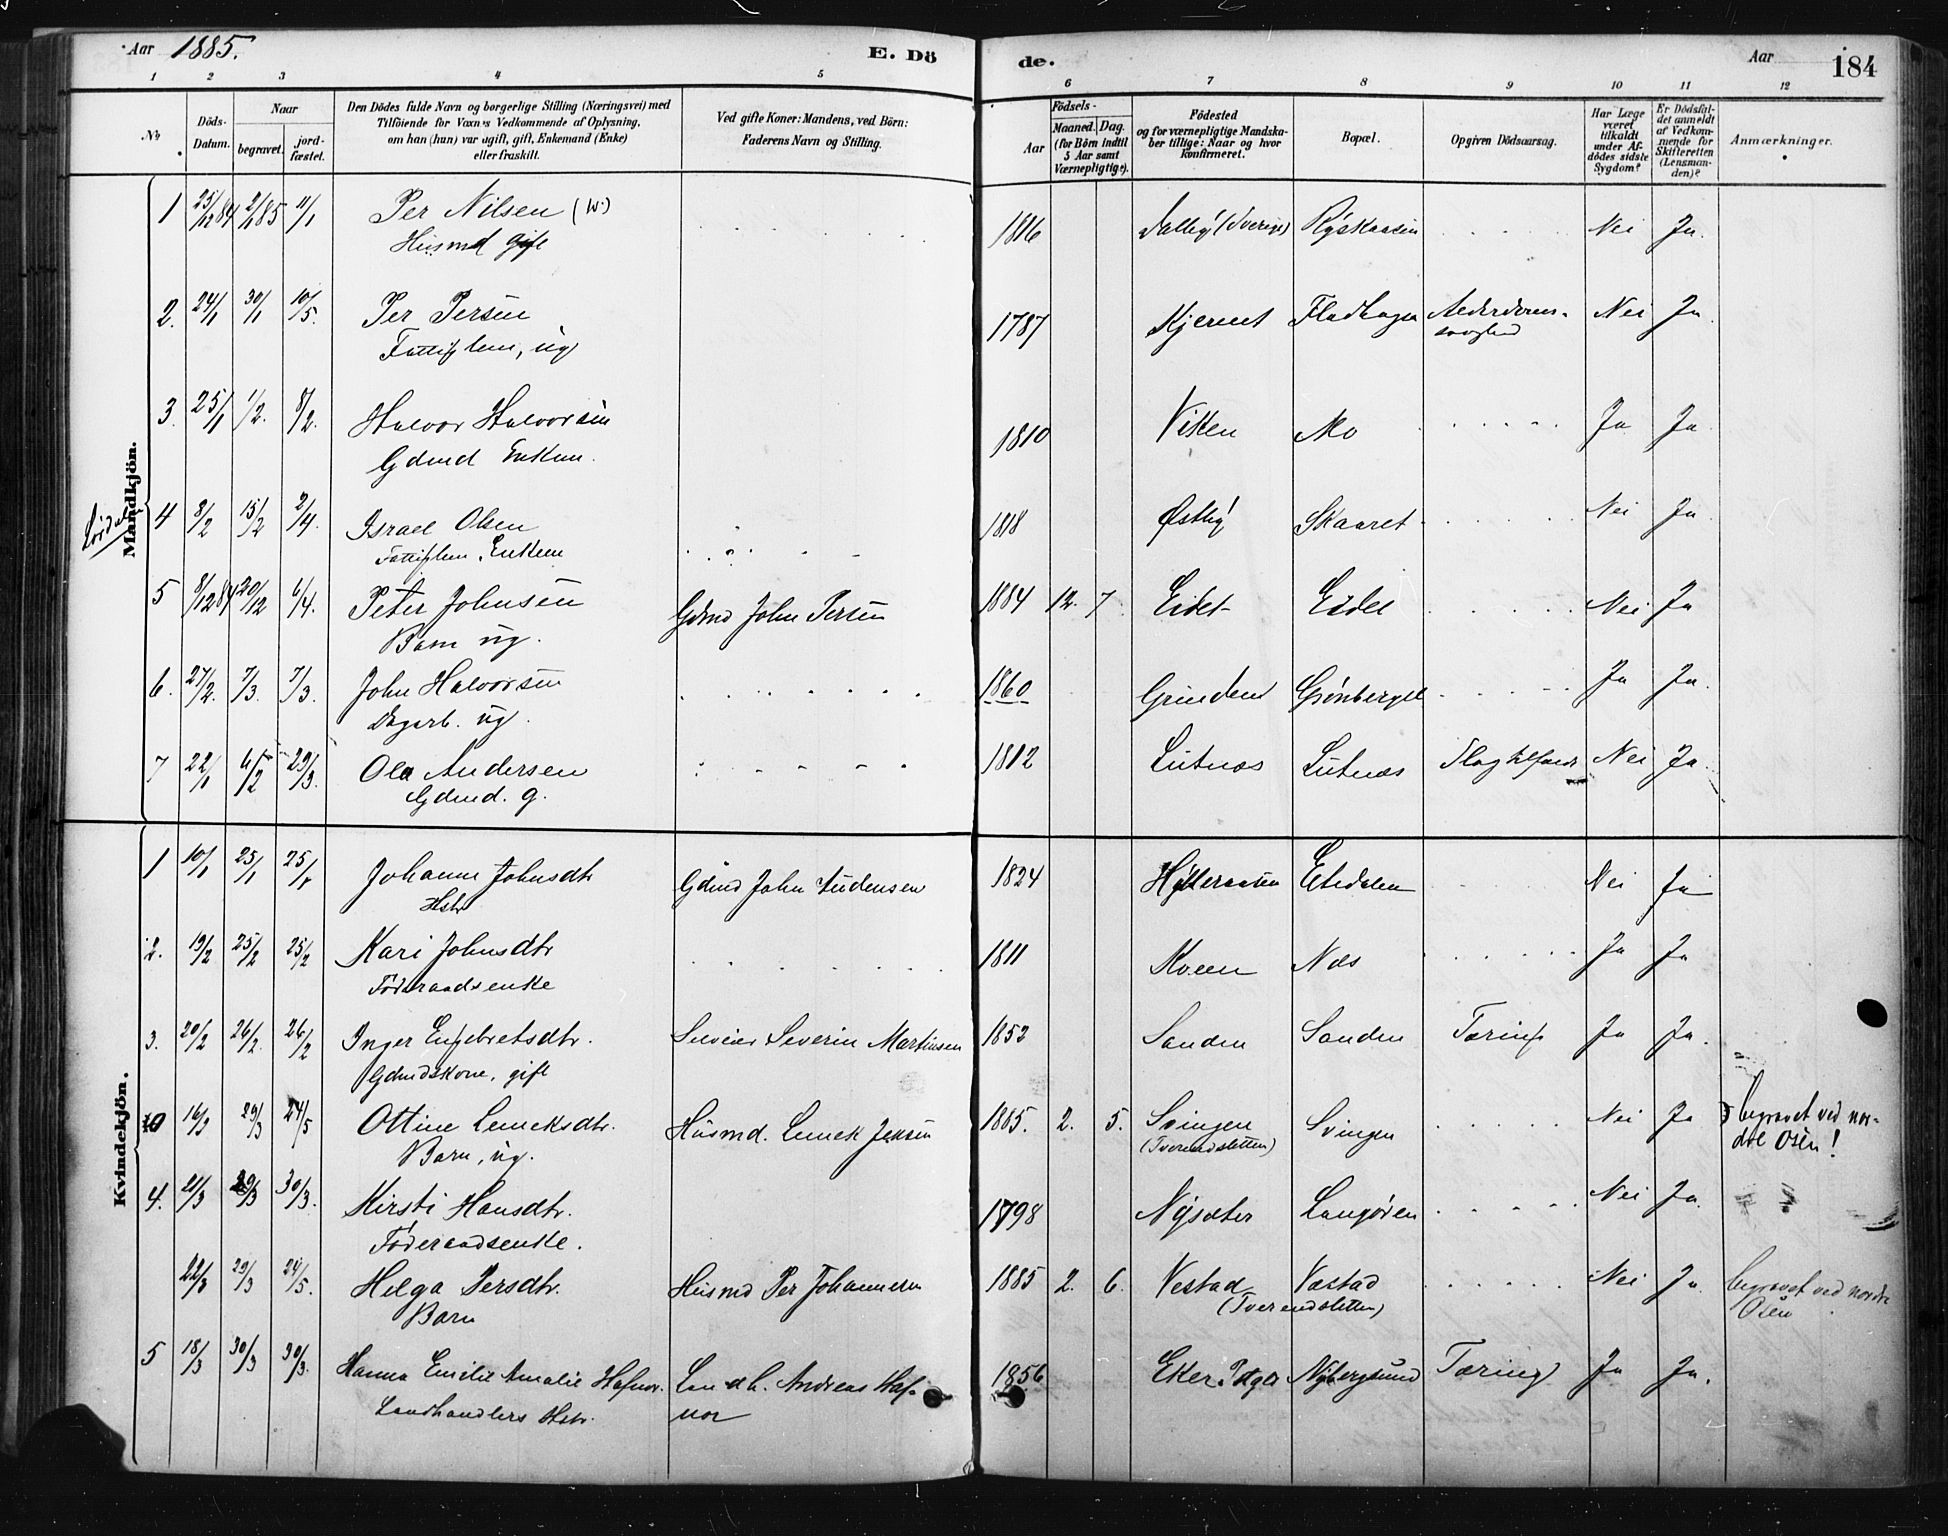 Aar 1885.
E. Dö
de.
Aar
184
1 2 3 4 5 6 7 8 9 10 11 12
No.
Döds-
Datum.
Naar
begravet.
jord-
fæstet.
Den Dödes fulde Navn og borgerlige Stilling (Næringsvei) med
Tilföiende for Voxnes Vedkommende af Oplysning,
om han (hun) var ugift, gift, Enkemand (Enke)
eller fraskilt.
Ved gifte Koner: Mandens, ved Börn:
Faderens Navn og Stilling.
Aar
Födsels-
Maaned. Dag.
(for Börn indtil
5 Aar samt
Værnepligtige).
Födested
og for værnepligtige Mandska-
ber tillige: Naar og hvor
konfirmeret.
Bopæl.
Opgiven Dödsaarsag.
Har Læge
været
tilkaldt
under Af-
dödes sidste
Sygdom?
Er Dödsfal-
det anmeldt
af Vedkom-
mende for
Skifteretten
(Lensman-
den)?
Anmærkninger.
Mandkjön.
1 25/12 84 2/1 85 11/1 Per Nilsen 1816 Dalby (Sverige) Ryskaasen Nei Ja.
Husmd gift
2. 24/1 30/1 10/5. Per Persen 1787 Kjernet Fladhagen Alderdoms- Nei Ja.
Fattiglem, ug svaghed
3. 25/1 1/2. 8/2. Halvor Halvorsen 1810 Viken Mo Ja Ja.
Gdmd Enkem.
4 8/2 15/2 2/4. Israel Olsen 1818 Østby Skaaret Nei Ja.
Fattiglem, Enkem
5 8/12 84 20/12 6/4. Peter Johnsen Gdmd John Persen 1884 12. 7 Eidet Eidet Nei Ja
Barn ug.
6. 27/2. 7/3. 7/3. John Halvorsen 1860 Grinden Grønberget Ja Ja.
Dagarb. ug.
7 22/1 6/2 29/3. Ola Andersen 1812 Lutnæs Lutnæs Slagtilfælde Nei Ja.
Gdmd. g.
Kvindekjön.
1 10/1 25/1 25/1 Johanne Johnsdtr Gdmd John Audensen 1824 Eltdalen Nei Ja
Hstr
2. 19/2 25/2 25/2 Kari Johnsdtr 1811 Kveen Næs Ja Ja
Föderaadsenke
3. 20/2 26/2. 26/2 Inger Engebretsdtr. Severin Martinsen 1852 Sanden Sanden Tæring Ja Ja.
Gdmdskone, gift
0 16/3 29/3 24/5 Ottine Lemeksdtr. Husmd. Lemek Jensen 1885. 2. 5. Svingen Svingen Nei Ja begravet ved nor-
Barn, ug. (Tverendsletten) dre Osen!
4. 21/3 29/3 30/3. Kirsti Hansdtr. 1798 Nysæter Langøren Nei Ja.
Föderaadsenke.
22/3 29/3 24/5. Helga Persdtr. Husmd Per Johannesen 1885 2. 6. Vestad Vastad Nei Ja. begravet ved nordre
Barn (Tverendsletten) Osen
5 18/3 30/3 30/3. Hanna Emilie Amalie Hafnor. Landh. Andreas Haf- 1856 Eker Nybergsund Tæring Ja Ja.
Landhandlers Hstr. nor